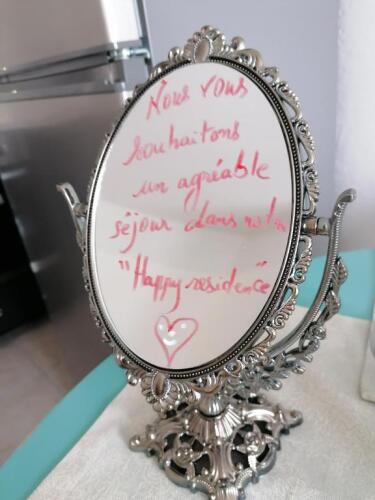 Nous vous
souhaitons
un agréable
séjour dans notre
"Happy residence"